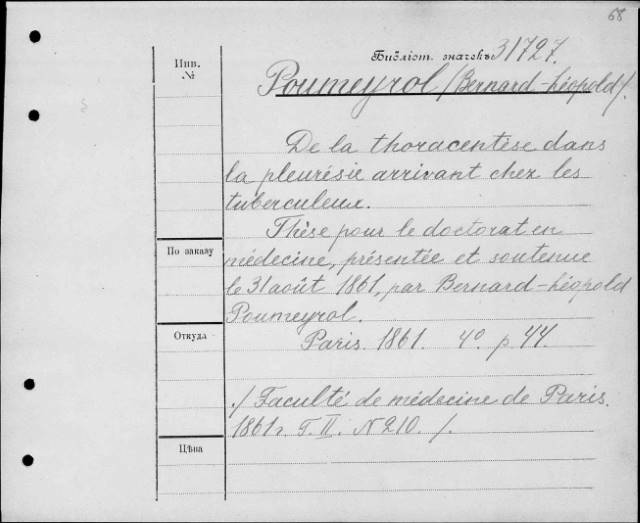 68
Инв.
№
Библіот. значекъ 31727.
Poumeyrol /Bernard-Léopold/.
De la thoracentèse dans
la pleurésie arrivant chez les
tuberculeux.
Thèse pour le doctorat en
По заказу
médecine, présentée et soutenue
le 31 août 1861, par Bernard-Léopold
Poumeyrol.
Откуда
Paris. 1861. 4º. p 44.
./ Faculté de médecine de Paris.
1861 г. T. II. N 210. /.
Цѣна